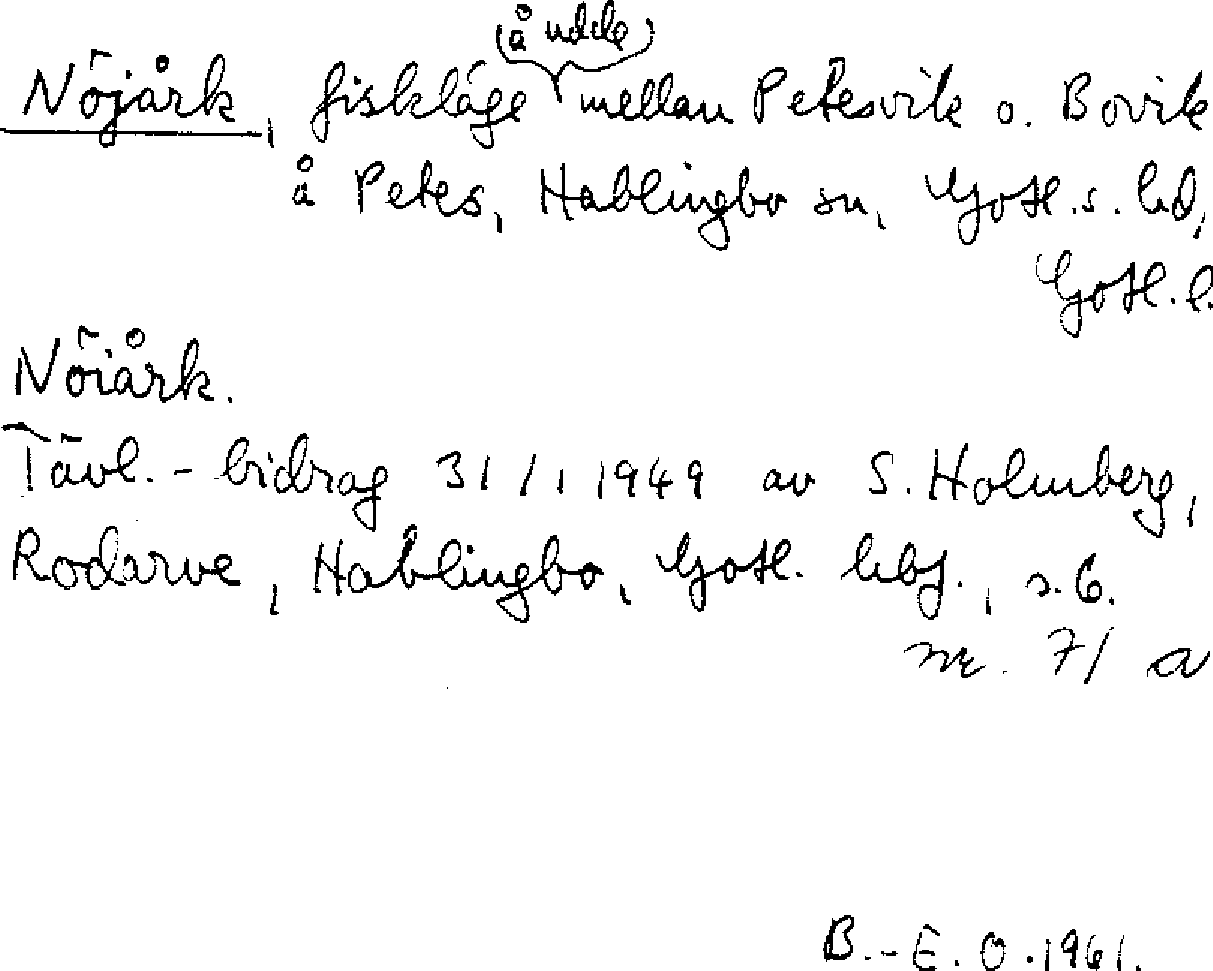 (å udde)
Nöjårk, fiskläge mellan Petesvik o. Bovik
å Petes, Hablingbo sn, Gotl. s. hd,
Gotl. l.
Nöiårk.
Tävl.-bidrag 31/1 1949 av S. Holmberg,
Rodarve, Hablingbo, Gotl. hbf., s. 6.
nr. 71 a
B.-E. O. 1961.